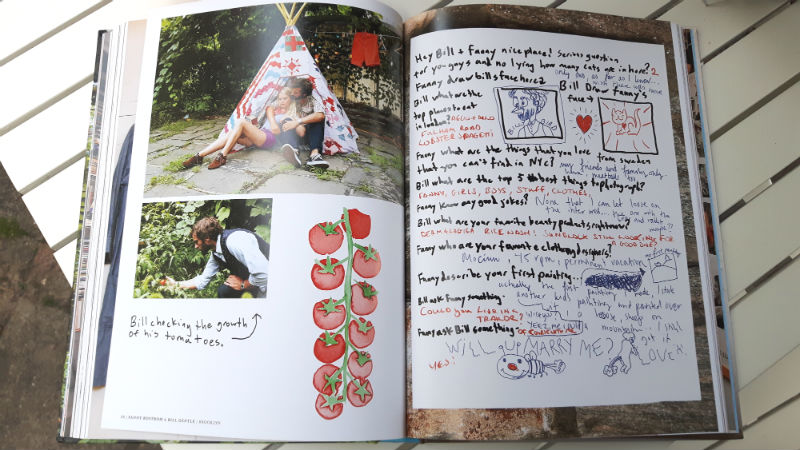 Bill checking the growth
of his tomatoes.
Hey Bill + Fanny nice place! Serious question
for you guys and no lying how many cats are in here? 2
only this as far as I know...
Fanny draw bills face here
Bill Draw Fanny's
face
Bill what are the
top places to eat
in london?
FULHAM ROAD
LOBSTER SPAGETTI
Fanny what are the things that you love from sweden
that you can't find in NYC? my friends and family, only
Bill what are the top 5 best things to photograph?
FANNY, GIRLS, BOYS, STAFF, CLOTHES
Fanny know any good jokes? None that I can let loose on
the internet...
Bill what are your favorite beauty products right now?
DERMALOGICA RICE WASH! SUNBLOCK STILL LOOKING FOR
A GOOD ONE?
Fanny who are your favourite clothing designers?
45 rpm, permanent vacation
Fanny describe your first painting...
actually the first painting I made I stole
another kids painting and painted over
Bill ask Fanny something
COULD YOU LIVE IN A
TRAILOR?
a house, sheep on
mountain. I still
got it.
Fanny ask Bill something
WILL U MARRY ME?
LOVE it!
YES!